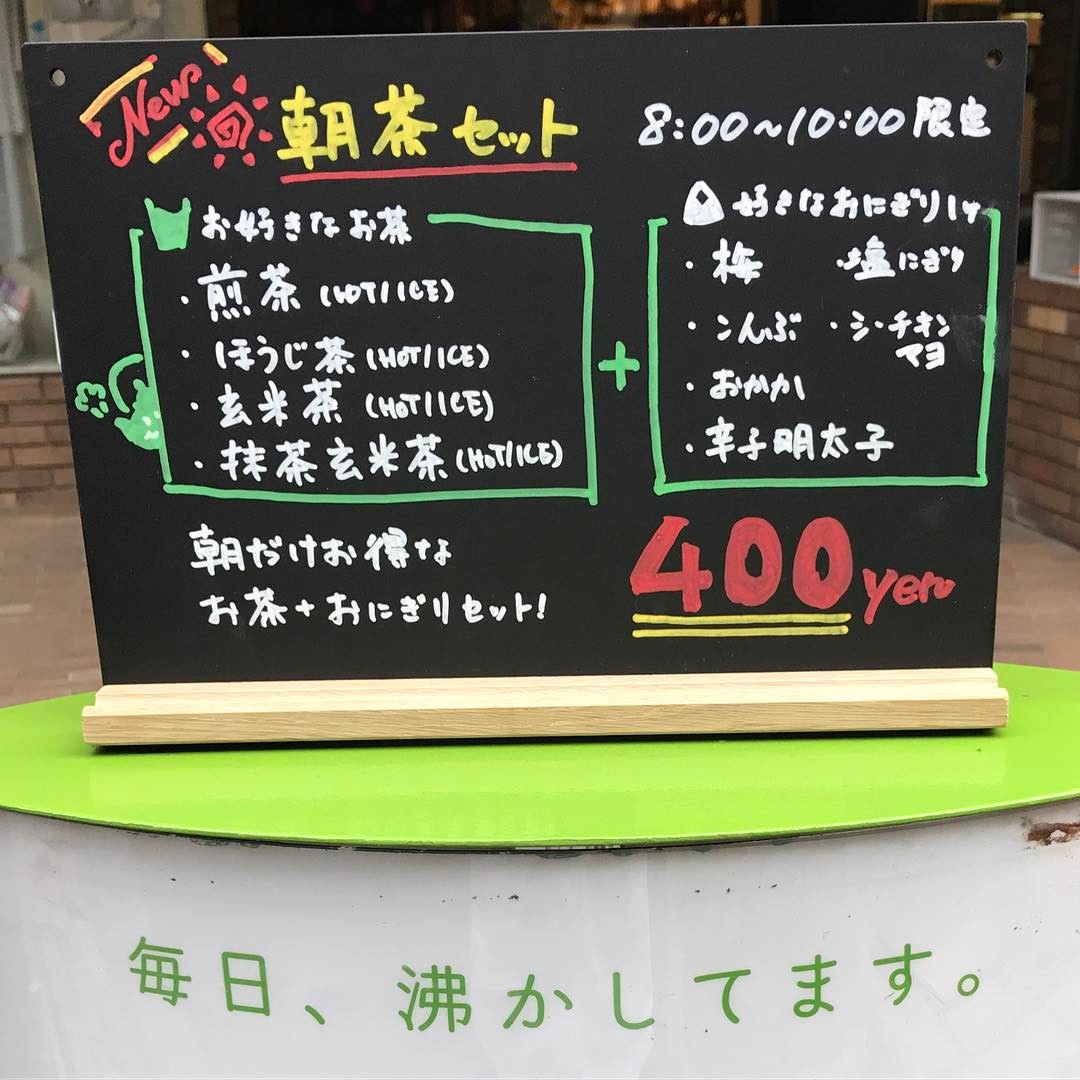 New 朝茶セット
8:00~10:00限定
お好きなお茶
・煎茶(HOT/ICE)
・ほうじ茶(HOT/ICE)
・玄米茶(HOT/ICE)
・抹茶玄米茶(HOT/ICE)
+
好きなおにぎり1ケ
・梅 ・塩にぎり
・こんぶ ・シーチキン
マヨ
・おかか
・辛子明太子
朝だけお得な
お茶+おにぎりセット!
400yen
毎日、沸かしてます。